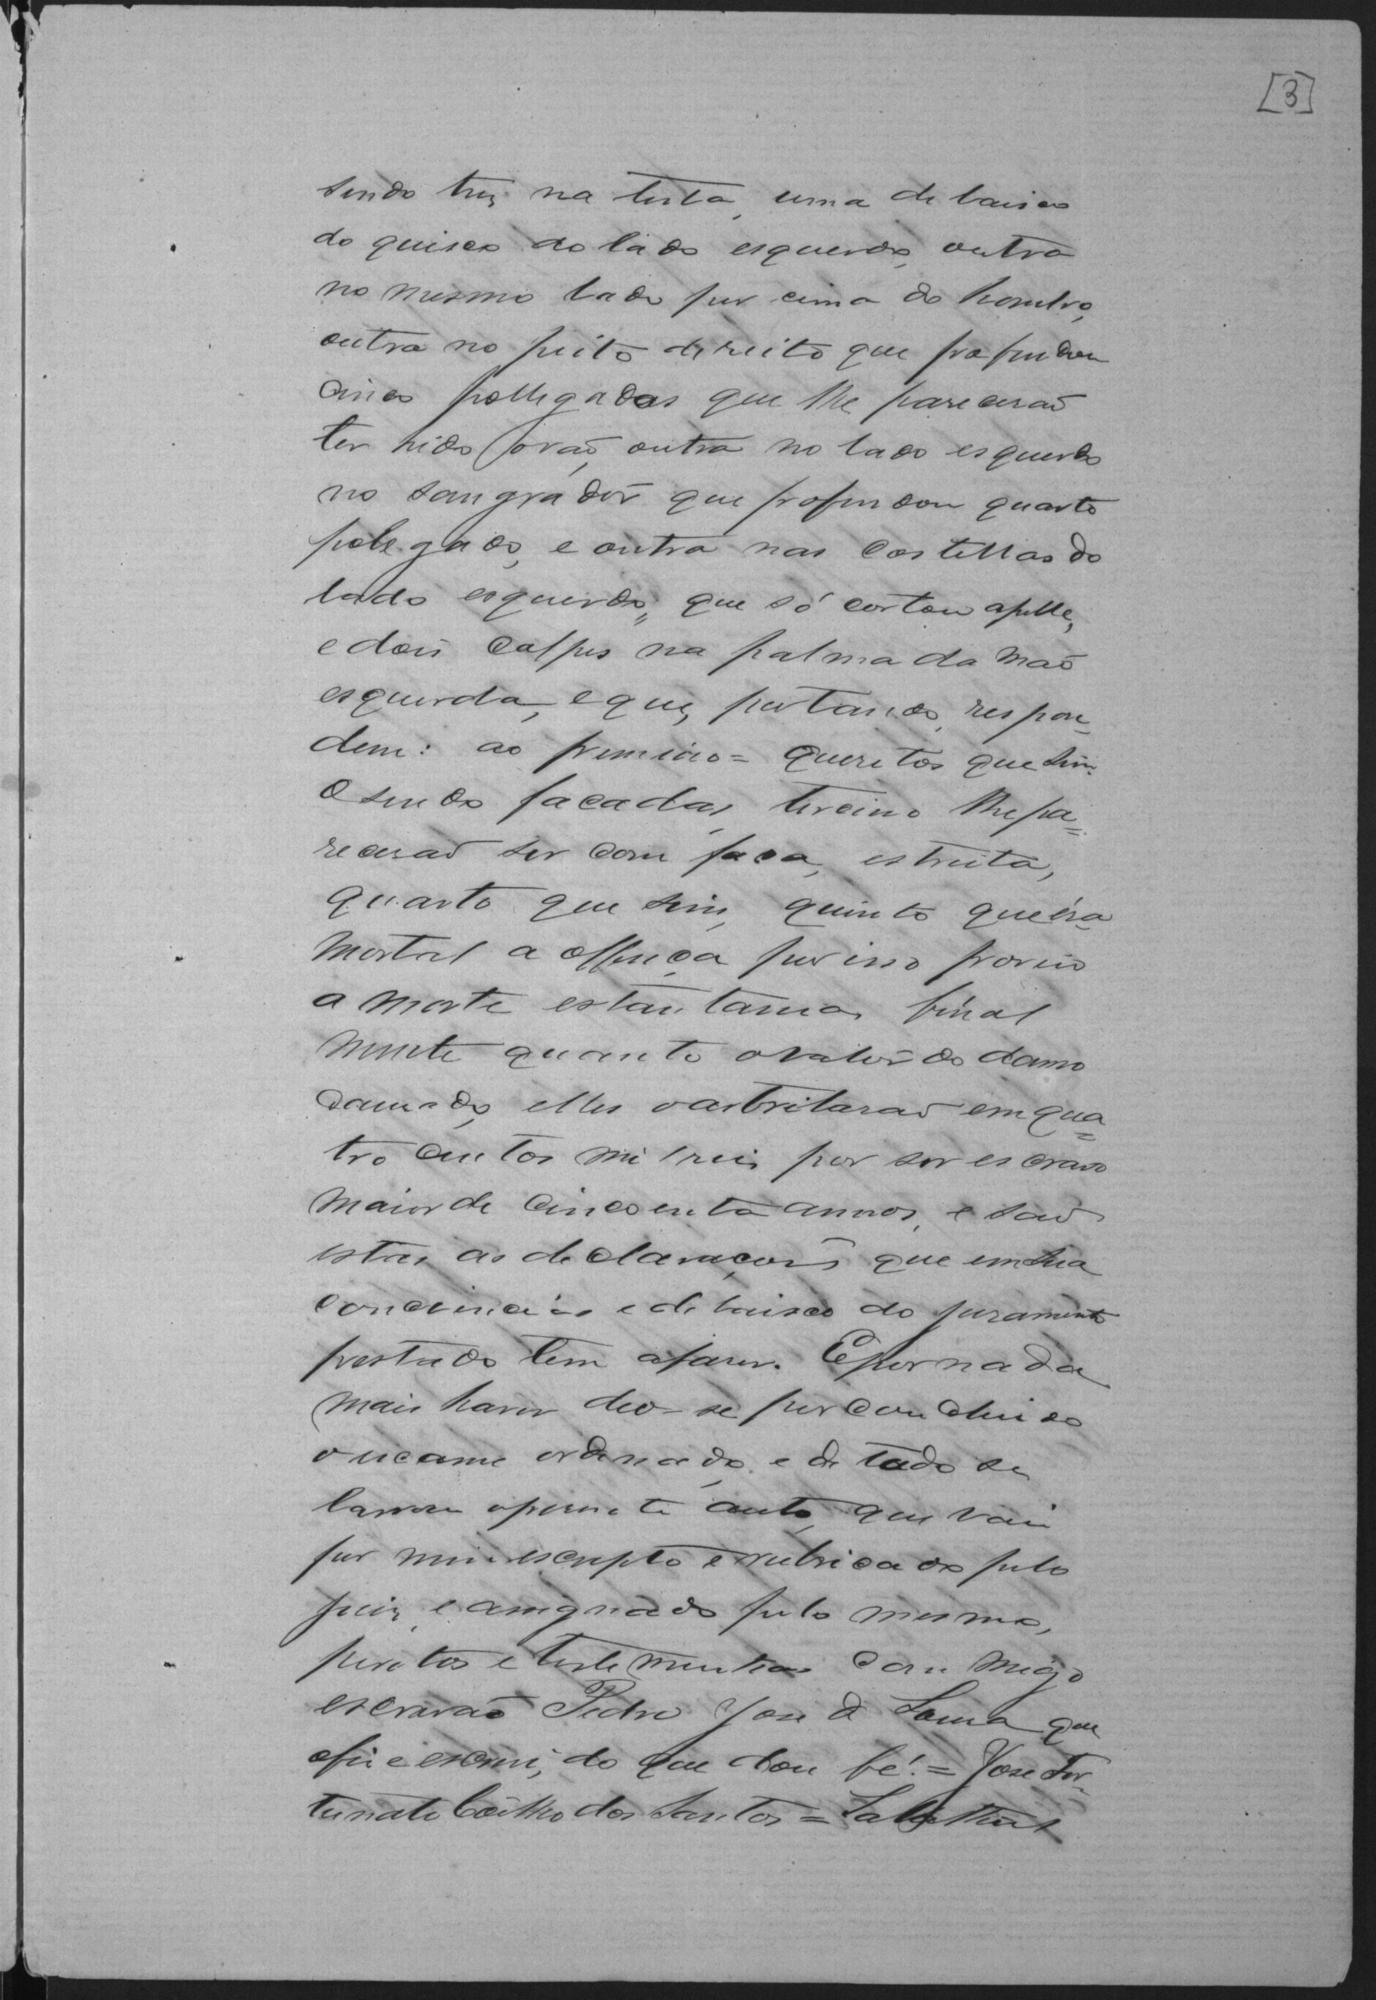 [3]
sendo tres na testa, uma de baixo
do queixo do lado esquerdo, outra
no mesmo lado por cima do hombro,
outra no peito dereito que profundou
cinco pollegadas que lhe parecerão
ter sido outra no lado esquerdo
no sangradór que profundou quarto
polegado, e outra nas costellas do
lado esquerdo, que só cortou apelle,
e dois golpes na palma da mão
esquerda, e que, portando, respon-
dem: ao premeiro = queritos que sim.
O sendo facadas, terceiro lhe pa=
recerão ser com faca, estreita,
quarto que sim, quinto que éra
mortal a offença por isso proveio
a morte estantania, final
mente quanto o valór do damno
causado, elles o arbritarão em qua=
tro centos mil reis por ser escravo
maior de cincoenta annos, e são
estas as declaraçoens que em sua
conciencias e de baixo do juramento
prestado tem afazer. E por nada
mais haver deo-se por concluido
o exame ordenado, e de tudo se
lavrou o presente auto, que vai
por mim escripto e rubricado pelo
juiz, e assignado pelo mesmo,
peritos e testemunhas com migo
escravão Pedro Jose de Souza que
ofiz e escrevi, do que dou fé! = Jose For=
tunato Coêlho dos Santos = Sabathiel